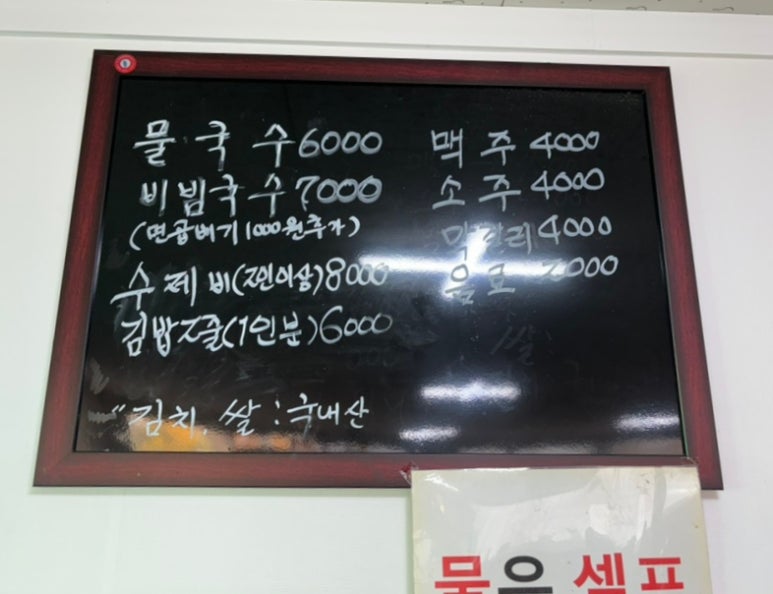 물국수 6000
비빔국수 7000
(면곱배기 1000원추가)
수제비(2인이상) 8000
김밥2줄(1인분) 6000
" 김치, 쌀 : 국내산
맥주 4000
소주 4000
막걸리 4000
음료 2000
쌀:
물은 셀프